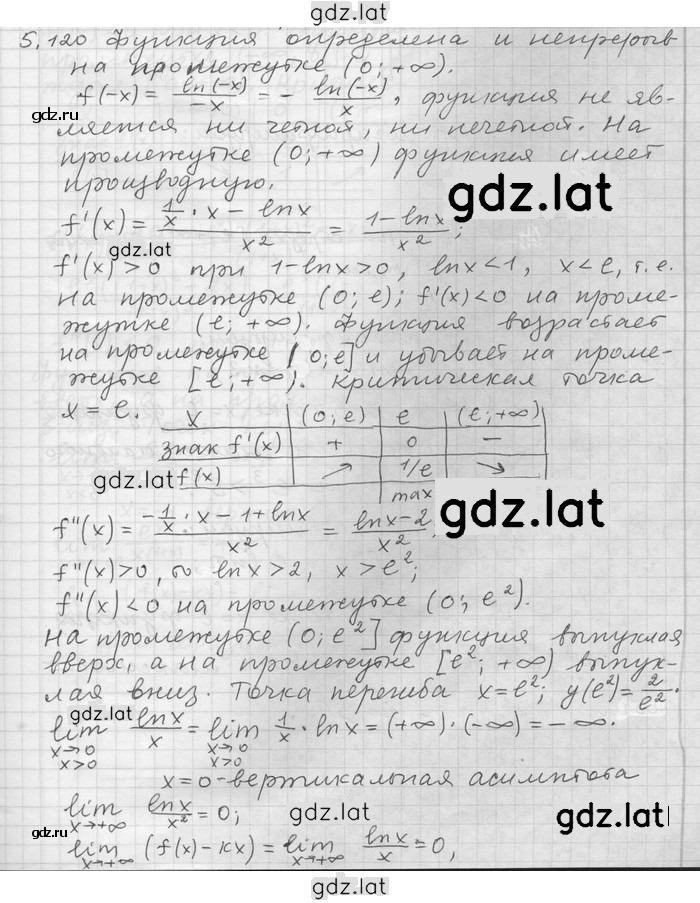 gdz.lat
5.120 Функция определена и непрерыв
на промежутке (0; +∞).
f(-x) = ln(-x)/-x = - ln(-x)/x, функция не яв-
gdz.ru
ляется ни четной, ни нечетной. На
промежутке (0; +∞) функция имеет
производную.
gdz.lat
f'(x) = (1/x · x - lnx)/x² = (1 - lnx)/x²;
gdz.lat
f'(x) > 0 при 1-lnx>0, lnx<1, x<e, т.е.
на промежутке (0; e); f'(x)<0 на проме-
жутке (e; +∞). Функция возрастает
на промежутке (0; e] и убывает на проме-
жутке [e; +∞). Критическая точка
x = e.
x (0; e) e (e; +∞)
знак f'(x) + 0 -
gdz.lat
f(x) ↗ 1/e ↘
max
gdz.lat
f''(x) = (-1/x · x - 1 + lnx)/x² = (lnx-2)/x².
f''(x)>0, то lnx>2, x>e²;
f''(x)<0 на промежутке (0; e²).
На промежутке (0; e²] функция выпуклая
вверх, а на промежутке [e²; +∞) выпук-
лая вниз. Точка перегиба x=e²; y(e²)=2/e².
gdz.lat
lim x→0 x>0 lnx/x = lim x→0 x>0 1/x · lnx = (+∞)·(-∞) = -∞.
x=0 - вертикальная асимптота
gdz.lat
lim x→+∞ lnx/x² = 0;
gdz.ru
gdz.lat
lim x→+∞ (f(x) - kx) = lim x→+∞ lnx/x = 0,
gdz.lat